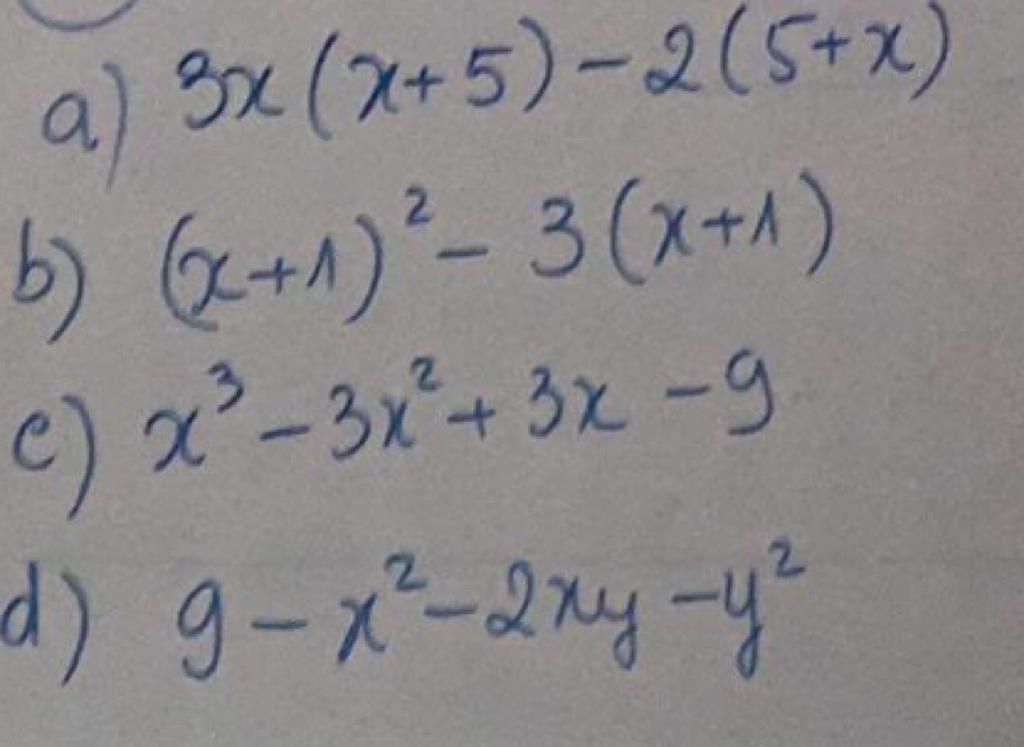 a) 3x(x+5)-2(5+x)
b) (x+1)²-3(x+1)
c) x³-3x²+3x-9
d) 9-x²-2xy-y²